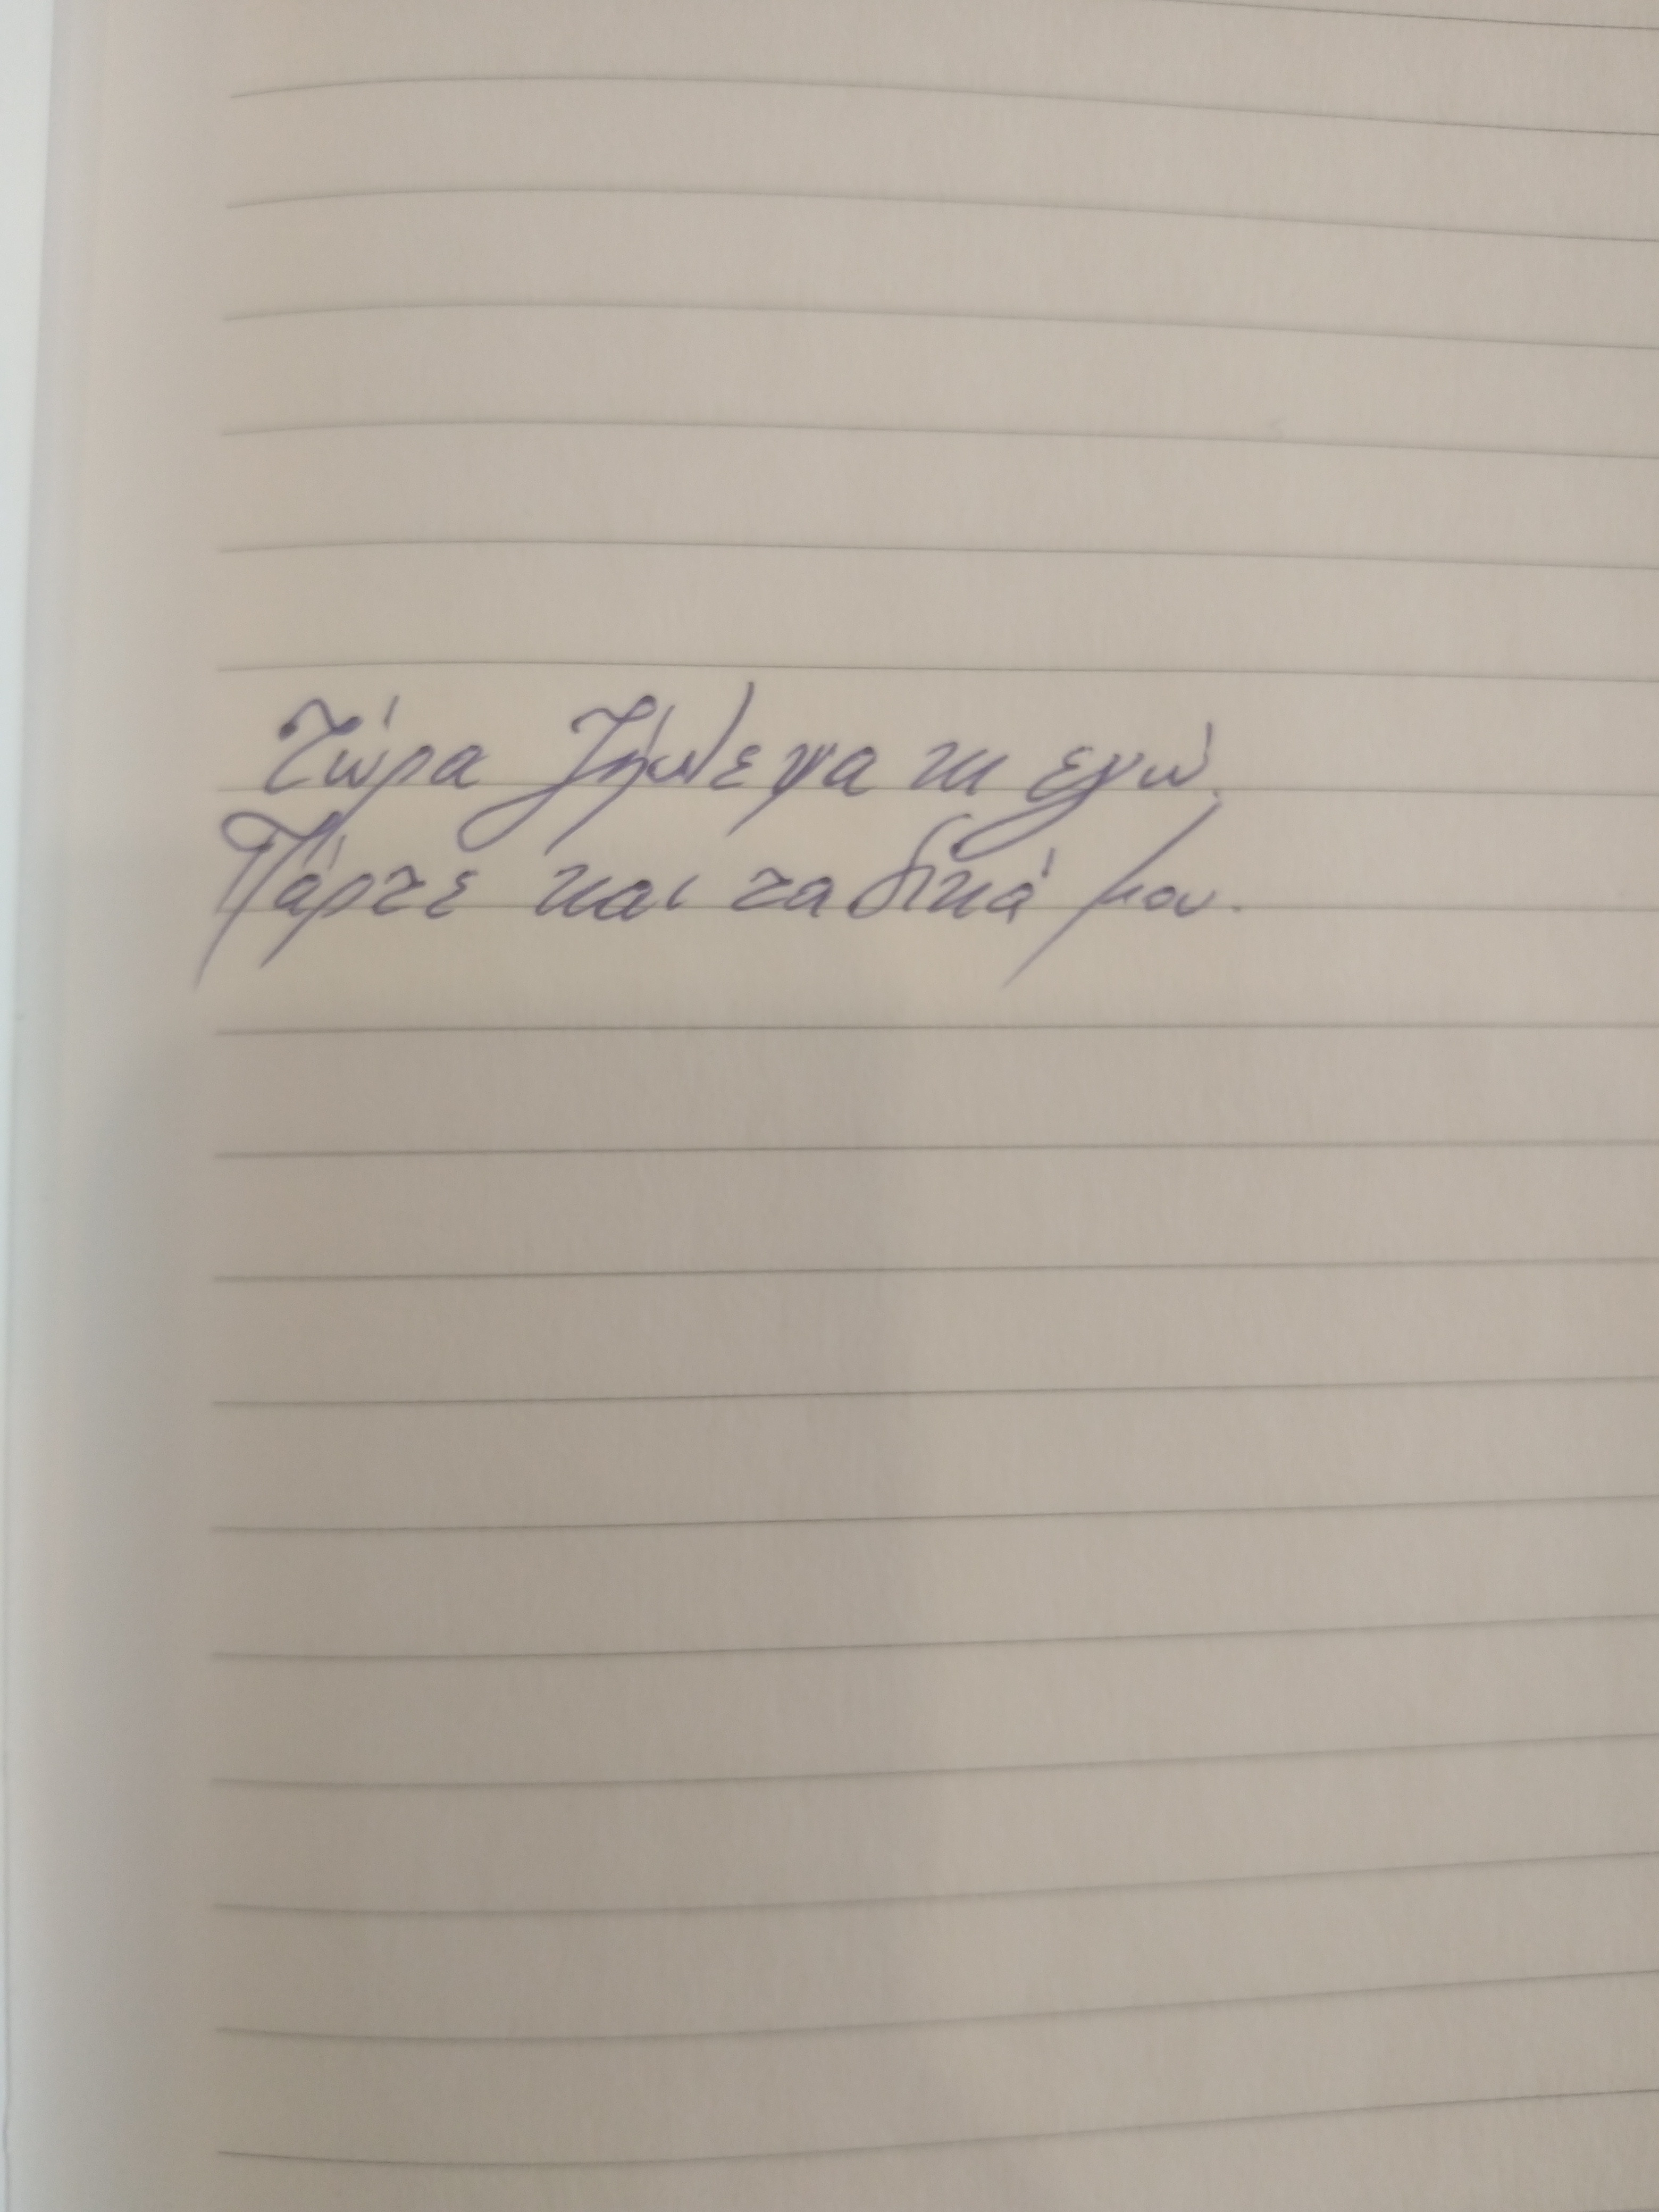 Τώρα ζήλεψα κι εγώ.
Πάρτε και τα δικά μου.